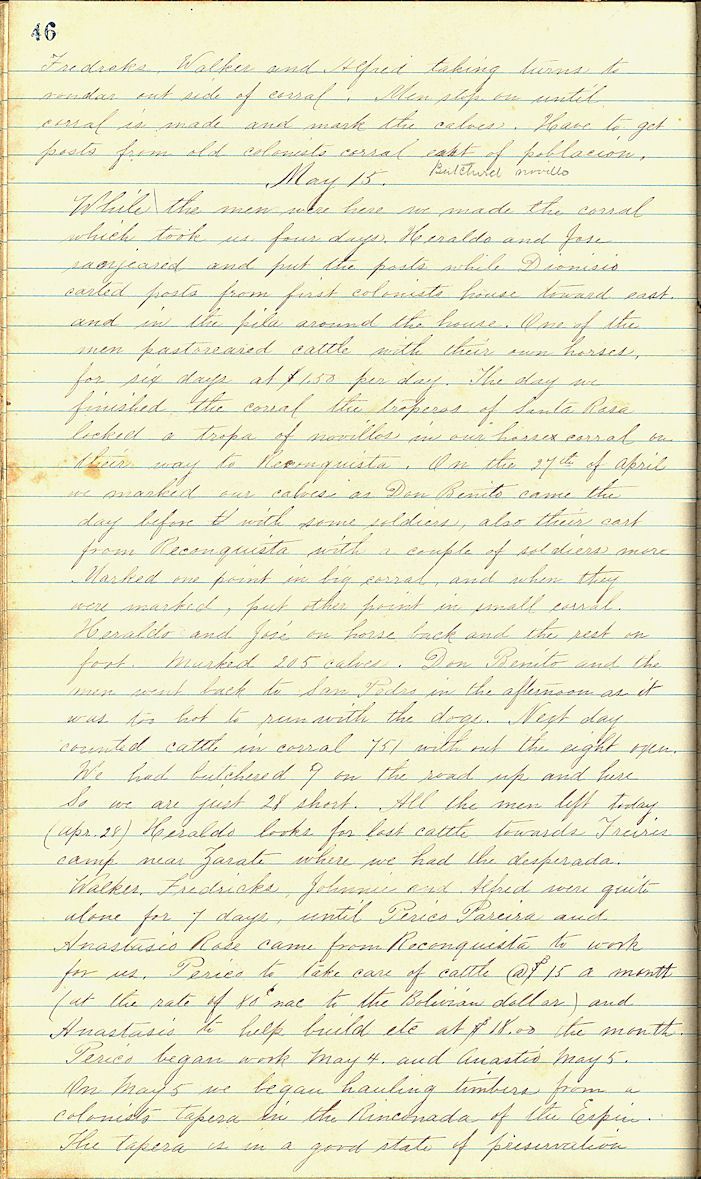 46
Fredricks, Walker and Alfred taking turns to
rondar out side of corral. Men stop on until
corral is made and mark the calves. Have to get
posts from old colonists corral east of poblacion.
May 15. Butchered novillo
While the men were here we made the corral
which took us four days. Heraldo and Jose
and put the posts while Dionisio
carted posts from first colonists house toward east.
and in the pila around the house. One of the
men pastoreared cattle with their own horses,
for six days at $1.50 per day. The day we
finished the corral the troperos of Santa Rosa
locked a tropa of novillos in our horses corral on
their way to Reconquista. On the 27th of April
we marked our calves as Don Benito came the
day before with some soldiers, also their cart
from Reconquista with a couple of soldiers more
Marked one point in big corral, and when they
were marked, put other point in small corral.
Heraldo and José on horse back and the rest on
foot. Marked 205 calves. Don Benito and the
men went back to San Pedro in the afternoon as it
was too hot to run with the dogs. Next day
counted cattle in corral 751 with out the eight oxen.
We had butchered 9 on the road up and here
So we are just 28 short. All the men left today
(Apr. 28) Heraldo looks for lost cattle towards Freires
camp near Zarate where we had the desperada.
Walker, Fredricks, Johnnie and Alfred were quite
alone for 7 days, until Perico Pareira and
Anastasio Rose came from Reconquista to work
for us. Perico to take care of cattle @ $15 a month
(at the rate of 80¢ nac to the Bolivian dollar) and
Anastasio to help build etc at $18.00 the month.
Perico began work May 4. and Anastio May 5.
On May 5 we began hauling timbers from a
colonists tapera in the Rinconada of the Espin.
The tapera is in a good state of preservation